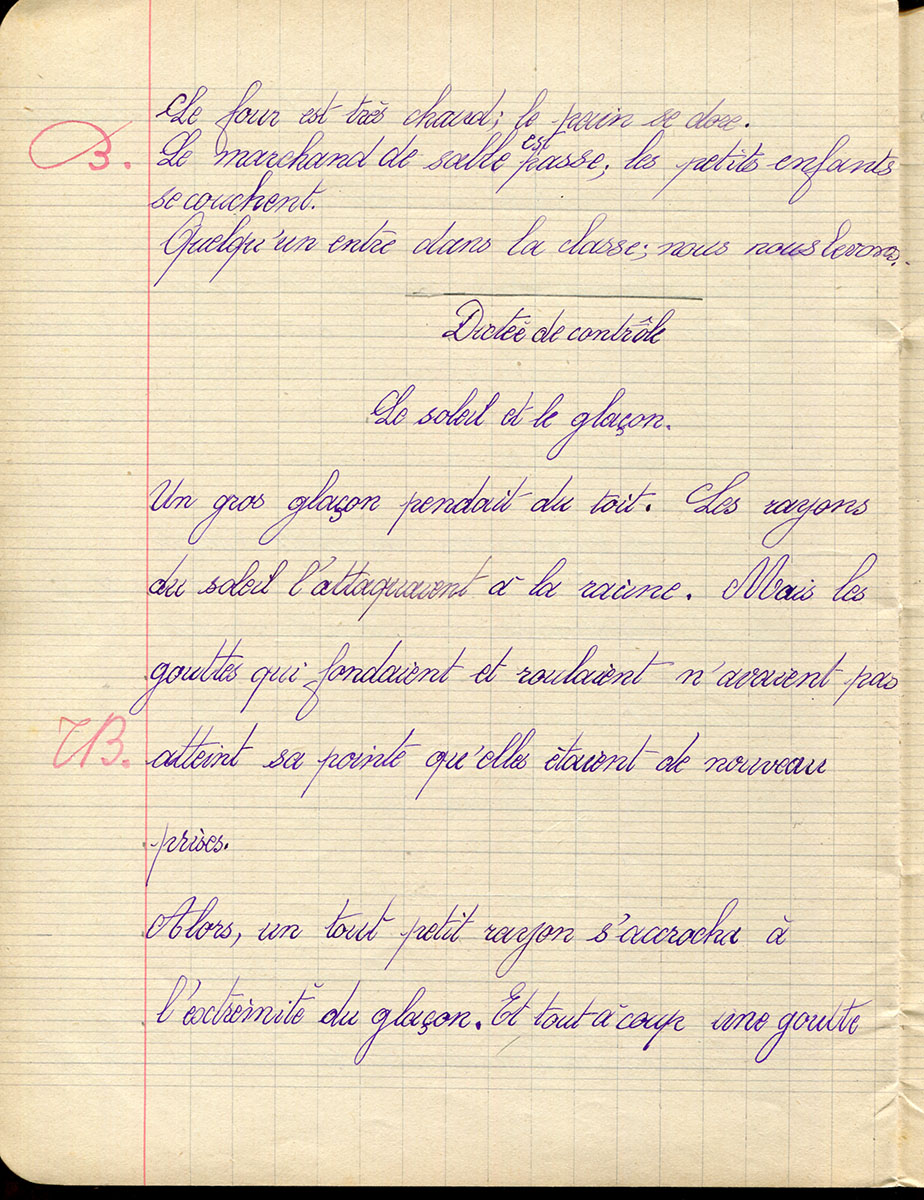 Le four est très chaud; le pain se dore.
B.
Le marchand de sable est passe; les petits enfants
se couchent.
Quelqu'un entre dans la classe; nous nous levons.
Dictée de contrôle
Le soleil et le glaçon.
Un gros glaçon pendait du toit. Les rayons
du soleil l'attaquaient à la racine. Mais les
gouttes qui fondaient et roulaient n'avaient pas
TB.
atteint sa pointe qu'elles étaient de nouveau
prises.
Alors, un tout petit rayon s'accrocha à
l'extrémité du glaçon. Et tout à coup une goutte